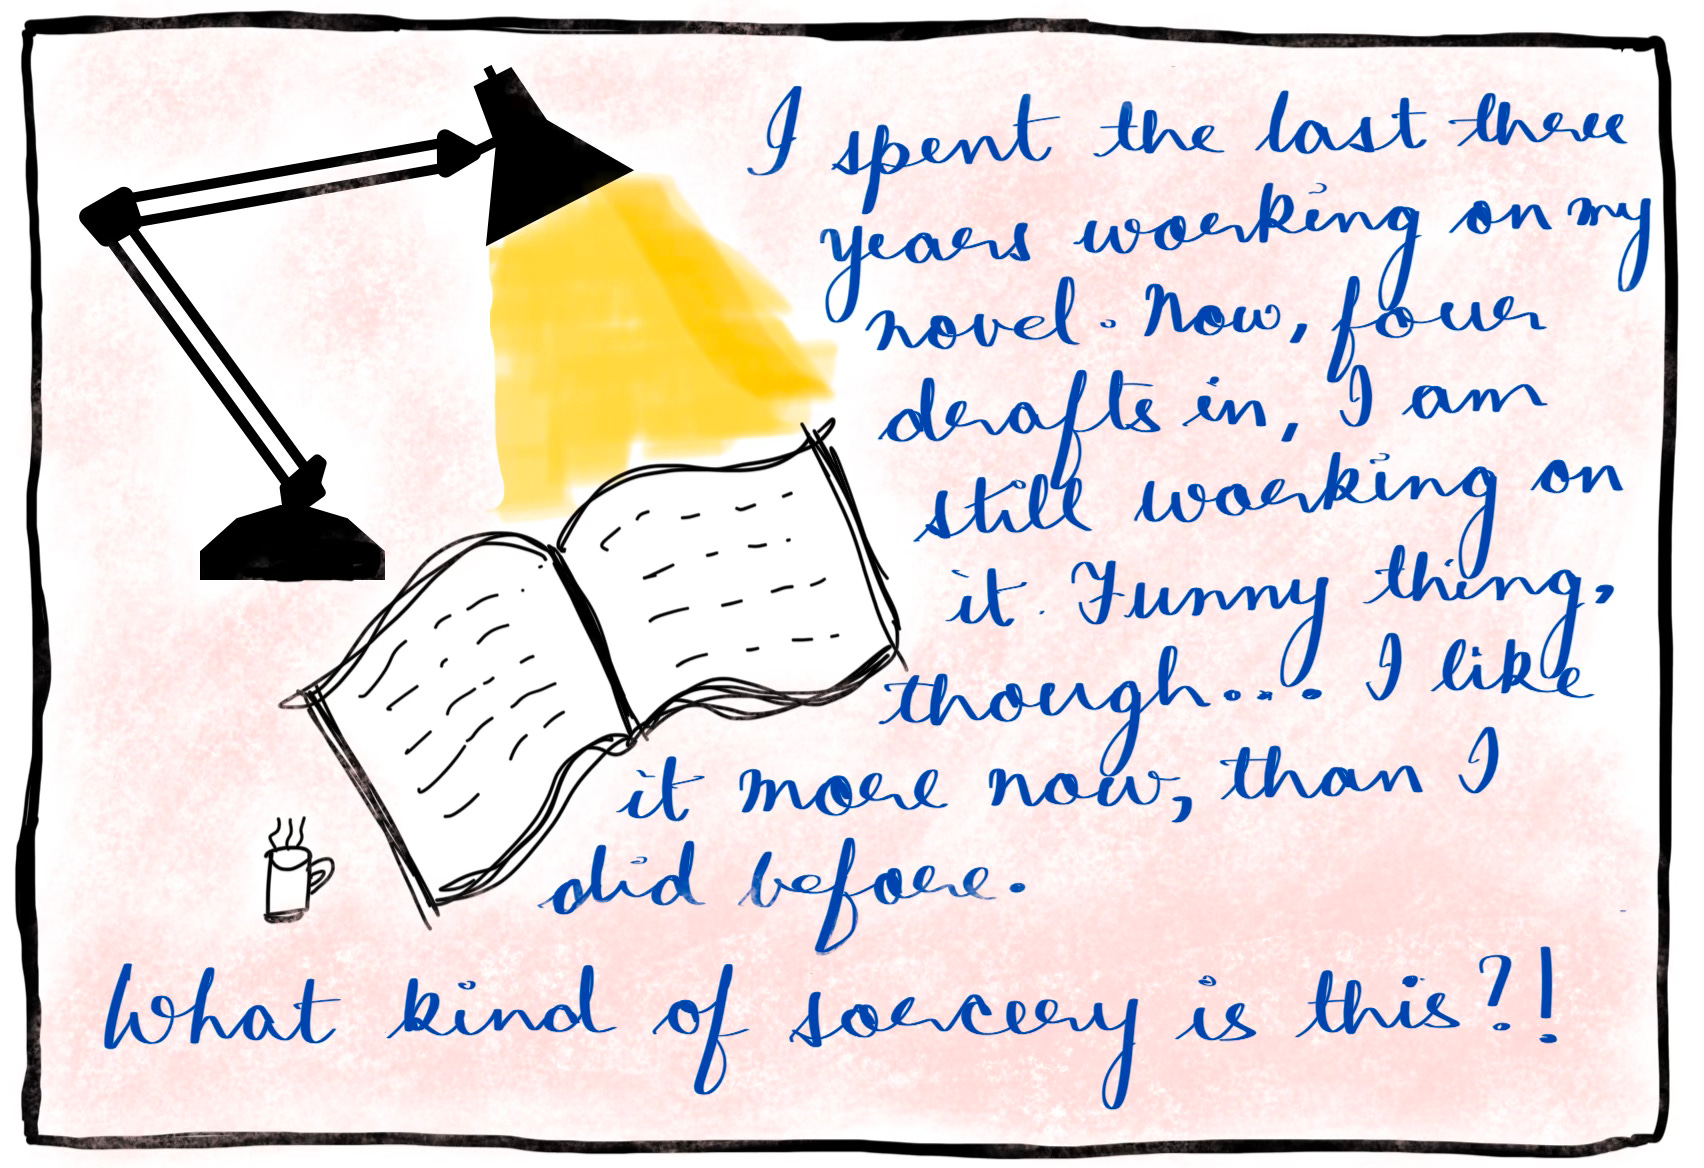 I spent the last three
years working on my
novel. Now, four
drafts in, I am
still working on
it. Funny thing,
though... I like
it more now, than I
did before.
What kind of sorcery is this?!